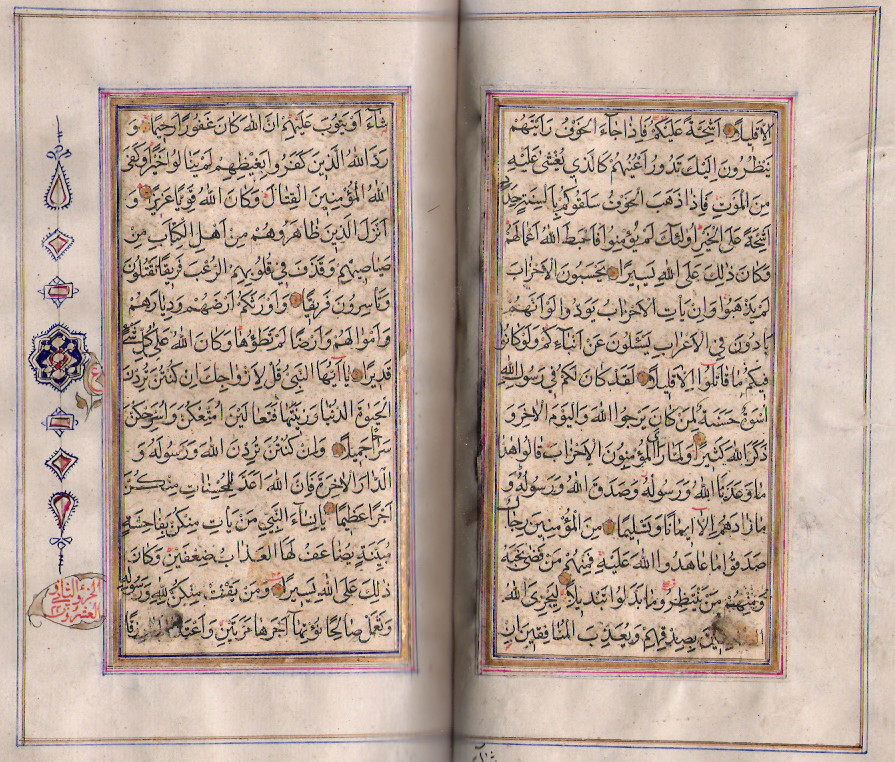 اِلَّا قَلِيلًا اَشِحَّةً عَلَيْكُمْ فَاِذَا جَآءَ الْخَوْفُ رَاَيْتَهُمْ
يَنْظُرُونَ اِلَيْكَ تَدُورُ اَعْيُنُهُمْ كَالَّذِي يُغْشٰى عَلَيْهِ
مِنَ الْمَوْتِ فَاِذَا ذَهَبَ الْخَوْفُ سَلَقُوكُمْ بِاَلْسِنَةٍ حِدَادٍ
اَشِحَّةً عَلَى الْخَيْرِ اُولٰئِكَ لَمْ يُؤْمِنُوا فَاَحْبَطَ اللهُ اَعْمَالَهُمْ
وَكَانَ ذٰلِكَ عَلَى اللهِ يَسِيرًا يَحْسَبُونَ الْاَحْزَابَ
لَمْ يَذْهَبُوا وَاِنْ يَاْتِ الْاَحْزَابُ يَوَدُّوا لَوْ اَنَّهُمْ
بَادُونَ فِي الْاَعْرَابِ يَسْئَلُونَ عَنْ اَنْبَآءِكُمْ وَلَوْ كَانُوا
فِيكُمْ مَا قَاتَلُوا اِلَّا قَلِيلًا لَقَدْ كَانَ لَكُمْ فِي رَسُولِ اللهِ
اُسْوَةٌ حَسَنَةٌ لِمَنْ كَانَ يَرْجُوا اللهَ وَالْيَوْمَ الْاٰخِرَ وَ
ذَكَرَ اللهَ كَثِيرًا وَلَمَّا رَاَ الْمُؤْمِنُونَ الْاَحْزَابَ قَالُوا هٰذَا
مَا وَعَدَنَا اللهُ وَرَسُولُهُ وَصَدَقَ اللهُ وَرَسُولُهُ وَ
مَا زَادَهُمْ اِلَّا اِيمَانًا وَتَسْلِيمًا مِنَ الْمُؤْمِنِينَ رِجَالٌ
صَدَقُوا مَا عَاهَدُوا اللهَ عَلَيْهِ فَمِنْهُمْ مَنْ قَضٰى نَحْبَهُ
وَمِنْهُمْ مَنْ يَنْتَظِرُ وَمَا بَدَّلُوا تَبْدِيلًا لِيَجْزِيَ اللهُ
بِصِدْقِهِمْ وَيُعَذِّبَ الْمُنَافِقِينَ اِنْ
شَآءَ
شَآءَ اَوْ يَتُوبَ عَلَيْهِمْ اِنَّ اللهَ كَانَ غَفُورًا رَحِيمًا وَ
رَدَّ اللهُ الَّذِينَ كَفَرُوا بِغَيْظِهِمْ لَمْ يَنَالُوا خَيْرًا وَكَفَى
اللهُ الْمُؤْمِنِينَ الْقِتَالَ وَكَانَ اللهُ قَوِيًّا عَزِيزًا وَ
اَنْزَلَ الَّذِينَ ظَاهَرُوهُمْ مِنْ اَهْلِ الْكِتَابِ مِنْ
صَيَاصِيهِمْ وَقَذَفَ فِي قُلُوبِهِمُ الرُّعْبَ فَرِيقًا تَقْتُلُونَ
وَتَاْسِرُونَ فَرِيقًا وَاَوْرَثَكُمْ اَرْضَهُمْ وَدِيَارَهُمْ
وَاَمْوَالَهُمْ وَاَرْضًا لَمْ تَطَؤُهَا وَكَانَ اللهُ عَلٰى كُلِّ شَيْءٍ
قَدِيرًا يَآ اَيُّهَا النَّبِيُّ قُلْ لِاَزْوَاجِكَ اِنْ كُنْتُنَّ تُرِدْنَ
الْحَيٰوةَ الدُّنْيَا وَزِينَتَهَا فَتَعَالَيْنَ اُمَتِّعْكُنَّ وَاُسَرِّحْكُنَّ
سَرَاحًا جَمِيلًا وَاِنْ كُنْتُنَّ تُرِدْنَ اللهَ وَرَسُولَهُ وَ
الدَّارَ الْاٰخِرَةَ فَاِنَّ اللهَ اَعَدَّ لِلْمُحْسِنَاتِ مِنْكُنَّ
اَجْرًا عَظِيمًا يَا نِسَآءَ النَّبِيِّ مَنْ يَاْتِ مِنْكُنَّ بِفَاحِشَةٍ
مُبَيِّنَةٍ يُضَاعَفْ لَهَا الْعَذَابُ ضِعْفَيْنِ وَكَانَ
ذٰلِكَ عَلَى اللهِ يَسِيرًا وَمَنْ يَقْنُتْ مِنْكُنَّ لِلّٰهِ وَرَسُولِهِ
وَتَعْمَلْ صَالِحًا نُؤْتِهَآ اَجْرَهَا مَرَّتَيْنِ وَاَعْتَدْنَا
ع
الجزء الثاني و
العشرون